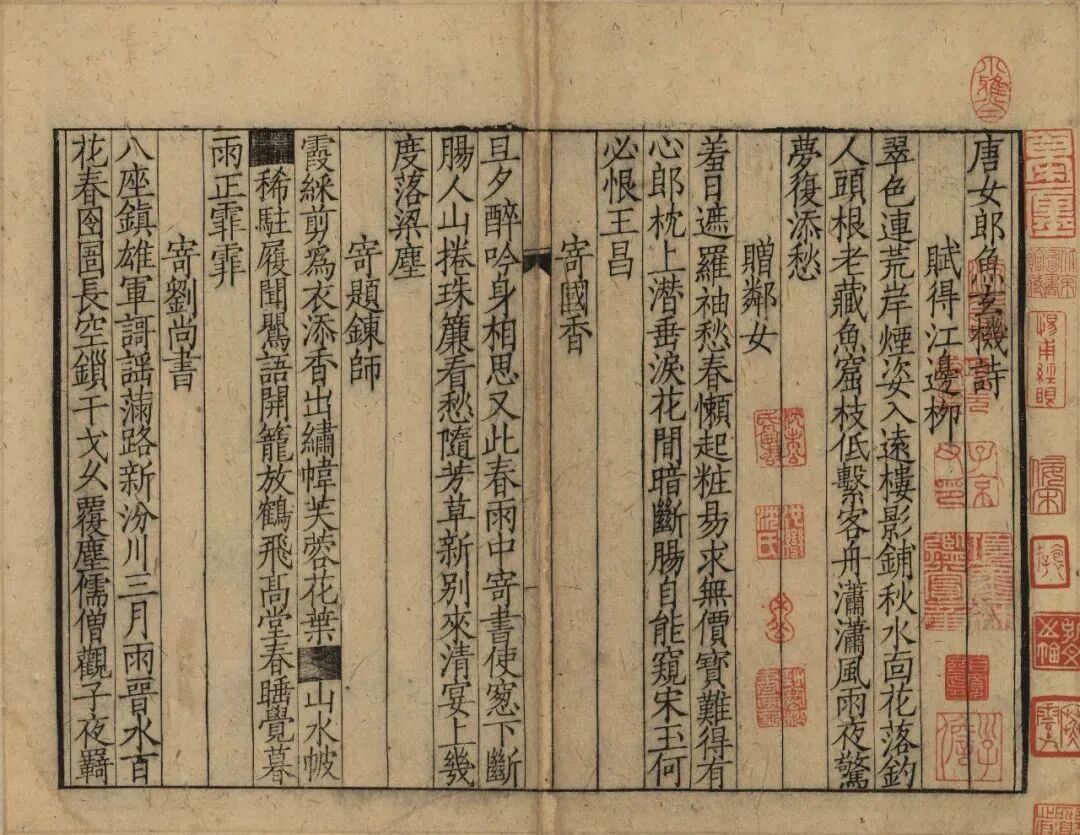 唐女郎魚玄機詩
賦得江邊柳
翠色連荒岸煙姿入遠樓影鋪秋水面花落釣
人頭根老藏魚窟枝低繫客舟瀟瀟風雨夜驚
夢復添愁
贈鄰女
羞日遮羅袖愁春懶起粧易求無價寶難得有
心郎枕上潛垂淚花間暗斷腸自能窺宋玉何
必恨王昌
寄國香
旦夕醉吟身相思又此春雨中寄書使窻下斷
腸人山捲珠簾看愁隨芳草新別來清宴上幾
度落梁塵
寄題鍊師
霞綵剪爲衣添香出繡幃芙蓉花葉山水帔
稀駐履聞鸎語開籠放鶴飛高堂春睡覺暮
雨正霏霏
寄劉尚書
八座鎮雄軍謌謡滿路新汾川三月雨晉水百
花春囹圄長空鎖干戈久覆塵儒僧觀子夜羇